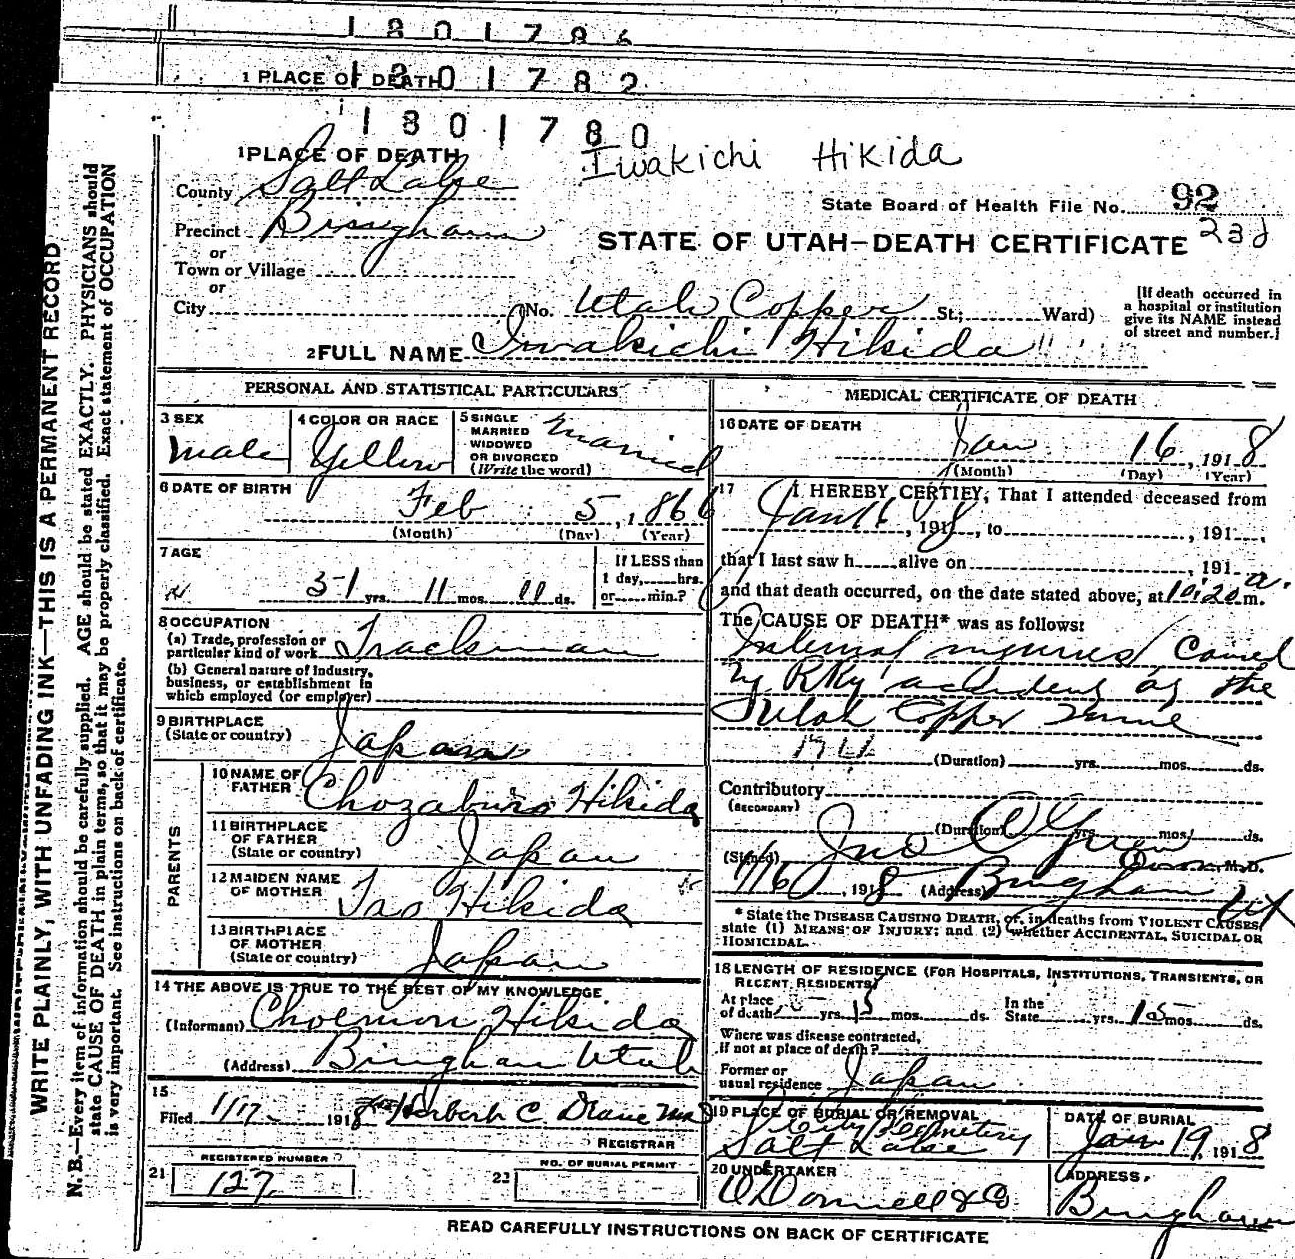 1801786
1 PLACE OF DEATH
1801782
1801780
1 PLACE OF DEATH
Iwakichi Hikida
County Salt Lake
State Board of Health File No. 92
Precinct Bingham
STATE OF UTAH—DEATH CERTIFICATE
232
or
Town or Village
or
City
(No. Utah Copper St.; Ward)
[If death occurred in
a hospital or institution
give its NAME instead
of street and number.]
2 FULL NAME Iwakichi Hikida
PERSONAL AND STATISTICAL PARTICULARS
3 SEX
Male
4 COLOR OR RACE
Yellow
5 SINGLE
MARRIED
WIDOWED
OR DIVORCED
(Write the word)
Married
6 DATE OF BIRTH
Feb 5, 1866
(Month) (Day) (Year)
7 AGE
51 yrs. 11 mos. 11 ds.
If LESS than
1 day, hrs.
or min.?
8 OCCUPATION
(a) Trade, profession or
particular kind of work Trackman
(b) General nature of industry,
business, or establishment in
which employed (or employer)
9 BIRTHPLACE
(State or country)
Japan
PARENTS
10 NAME OF
FATHER
Chozaburo Hikida
11 BIRTHPLACE
OF FATHER
(State or country)
Japan
12 MAIDEN NAME
OF MOTHER
Tao Hikida
13 BIRTHPLACE
OF MOTHER
(State or country)
Japan
14 THE ABOVE IS TRUE TO THE BEST OF MY KNOWLEDGE
(Informant) Choemon Hikida
(Address) Bingham Utah
15
Filed 1/17 1918 Herbert C. Drane
REGISTRAR
REGISTERED NUMBER
21 127
NO. OF BURIAL PERMIT
22
MEDICAL CERTIFICATE OF DEATH
16 DATE OF DEATH
Jan 16, 1918
(Month) (Day) (Year)
17 I HEREBY CERTIFY, That I attended deceased from
Jan 16, 1918, to , 191
that I last saw h alive on , 191
and that death occurred, on the date stated above, at 10:20 a. m.
The CAUSE OF DEATH* was as follows:
Internal injuries Caused
by RRy accident at the
Utah Copper mine
(Duration) yrs. mos. ds.
Contributory
(SECONDARY)
(Duration) yrs. mos. ds.
(Signed) Jno M.D.
1/16, 1918 (Address) Bingham Ut
* State the DISEASE CAUSING DEATH, or, in deaths from VIOLENT CAUSES,
state (1) MEANS OF INJURY; and (2) whether ACCIDENTAL, SUICIDAL OR
HOMICIDAL.
18 LENGTH OF RESIDENCE (FOR HOSPITALS, INSTITUTIONS, TRANSIENTS, OR
RECENT RESIDENTS)
At place
of death yrs. 15 mos. ds.
In the
State yrs. 15 mos. ds.
Where was disease contracted,
if not at place of death?
Former or
usual residence Japan
19 PLACE OF BURIAL OR REMOVAL
City Cemetery
Salt Lake
DATE OF BURIAL
Jan 19, 1918
20 UNDERTAKER
O'Donnell & Co
ADDRESS
Bingham
READ CAREFULLY INSTRUCTIONS ON BACK OF CERTIFICATE
WRITE PLAINLY, WITH UNFADING INK—THIS IS A PERMANENT RECORD
N. B.—Every item of information should be carefully supplied. AGE should be stated EXACTLY. PHYSICIANS should
state CAUSE OF DEATH in plain terms, so that it may be properly classified. Exact statement of OCCUPATION
is very important. See instructions on back of certificate.